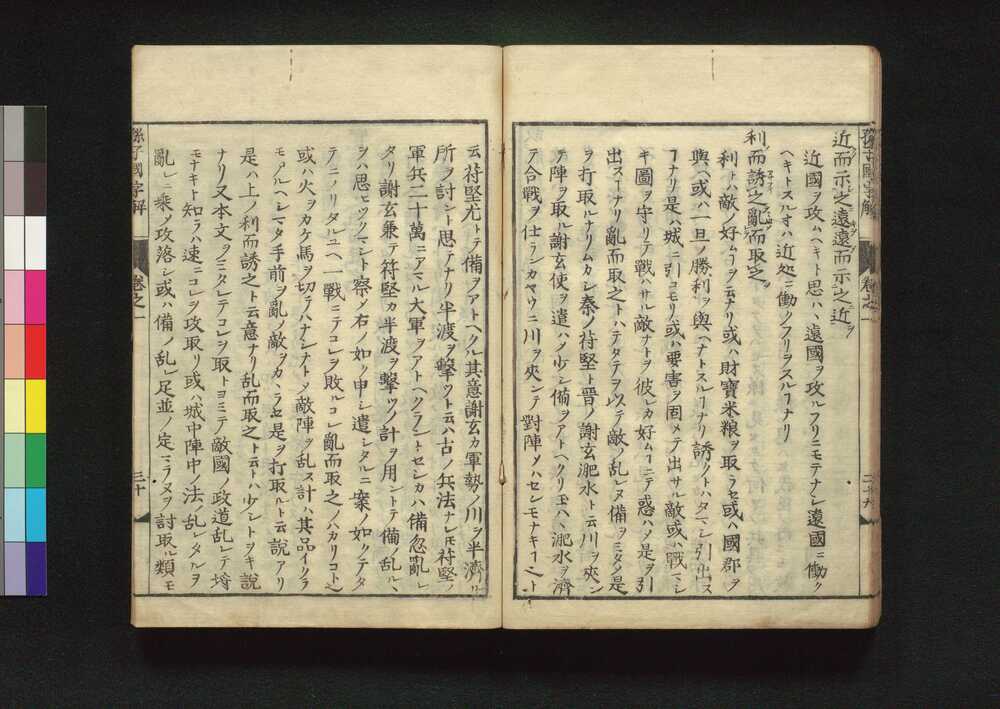 近而示之遠遠而示之近
近國ヲ攻ムヘキト思ハヽ遠國ヲ攻ルフリニモテナシ遠國ニ働ク
ヘキトスルオハ近処ニ働クフリヲスルヿナリ
利而誘之亂而取之
利トハ敵ノ好ムヿヲ云ナリ或ハ財寶米粮ヲ取ラセ或ハ國郡ヲ
與ヘ或ハ一旦ノ勝利ヲ與ヘナトスルヿナリ誘クトハタマシ引出ス
ヿナリ是ハ城ニ引コモリ或ハ要害ヲ固メテ出サル敵或ハ戰マシ
キ圖ヲ守リテ戰ハサル敵ナトヲ彼レカ好ムヿニテ惑ハメ是ヲ引
出スヿナリ亂而取之トハテタテヲ以テ敵ノ乱レヌ備ヲミタメ是
ヲ打取ルナリムカシ秦ノ符堅ト晋ノ謝玄淝水ト云川ヲ夾ン
テ陣ヲ取ル謝玄使ヲ遣ハメ少シ備ヲアトヘクリ玉ハヽ淝水ヲ濟
テ合戰ヲ仕ランカヤウニ川ヲ夾テ對陣メハセシモナキヿ也ト
云符堅尤トテ備ヲアトヘクル其意謝玄カ軍勢ノ川ヲ半濟ル
所ヲ討ント思テナリ半渡ヲ擊ツト云ハ古ノ兵法ナレモ符堅ノ
軍兵二十萬ニアマル大軍ヲアトヘクラントセシカハ備忽亂レ
タリ謝玄兼テ符堅カ半渡ヲ擊ツノ計ヲ用ントテ備ノ乱ルヽ
ヲハ思ヒヨツマシト察メ右ノ如ク申シ遣シタルニ案ノ如クテタ
テニノリタルユヘ一戰ニテコレヲ敗ルコレ亂而取之ノハカリコト也
或ハ火ヲカケ馬ヲ切テハナシナトメ敵陣ヲ乱ス計ハ其品イクラ
モアルヘシマタ手前ヲ亂メ敵ヲカヽラセ是ヲ打取ルト云説アリ
是ハ上ノ利而誘之ト云意ナリ乱而取之ト云トハ少シトヲキ説
ナリ又本文ヲミタレテコレヲ取トヨミテ敵國ノ政道乱レテ埒
モナキト知ラハ速ニコレヲ攻取リ或ハ城中陣中ノ法ノ乱レタルヲ
亂レニ乘メ攻落シ或ハ備ノ乱レ足並ノ定マラヌヲ討取ル類モ
孫子國字解
卷之一
三十